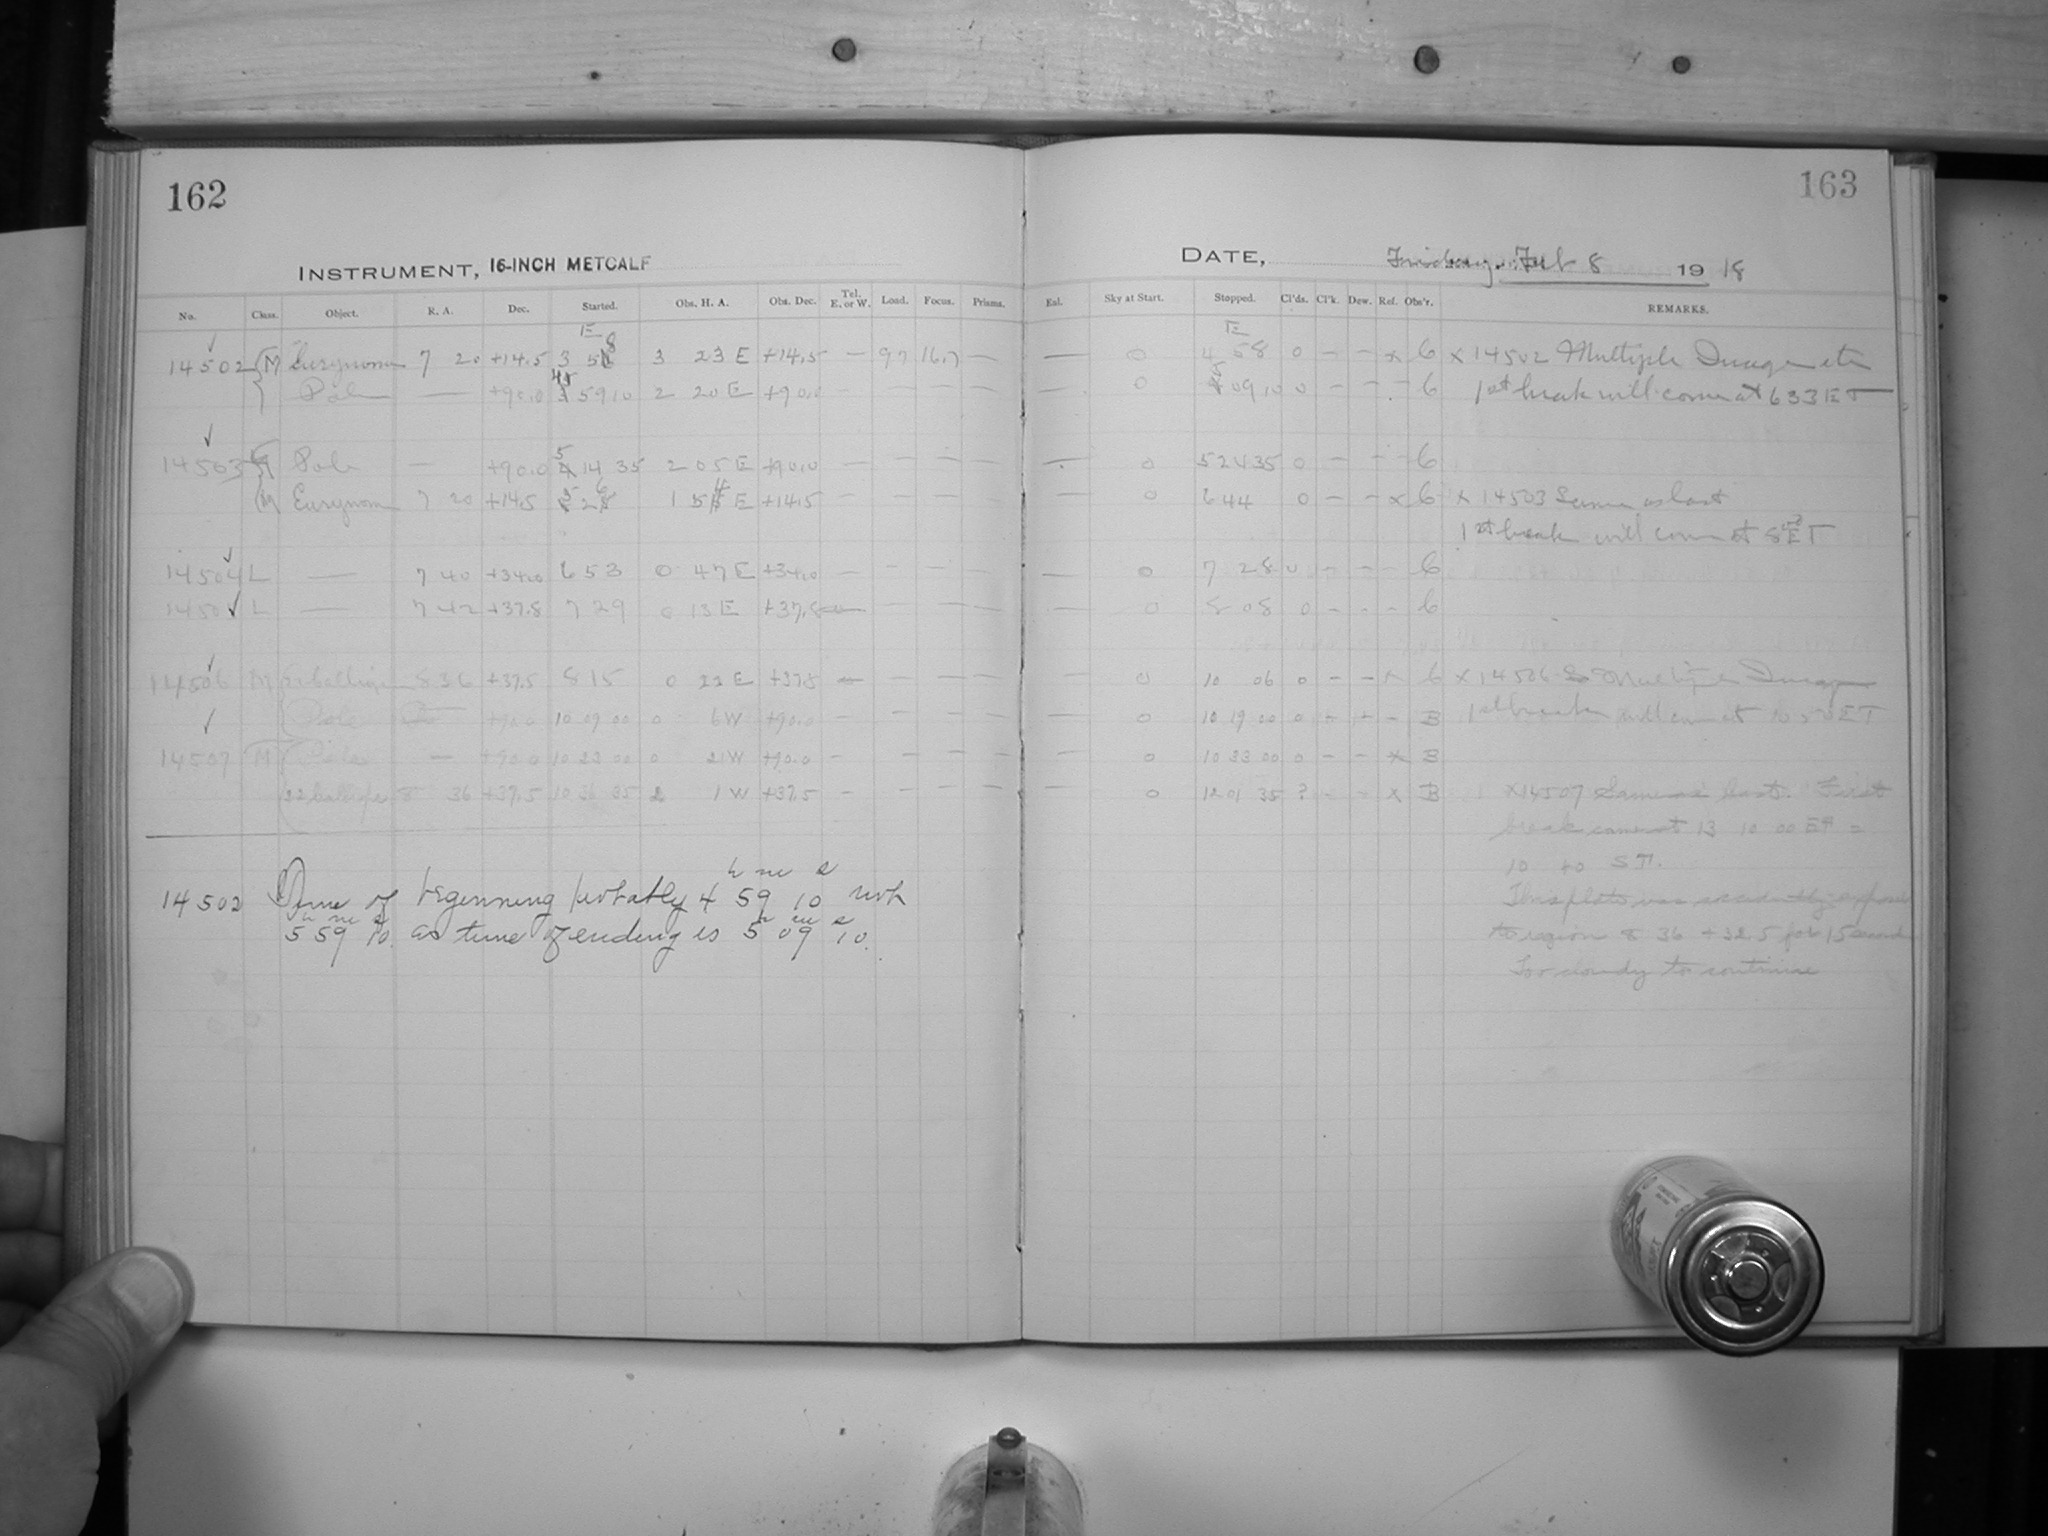 162
163
INSTRUMENT, 16-INCH METCALF
DATE, Friday. Feb 8 1918
No. Class. Object. R. A. Dec. Started. Obs. H. A. Obs. Dec. Tel. E. or W. Load. Focus. Prisms.
Eal. Sky at Start. Stopped. Cl'ds. Cl'k. Dew. Ref. Obs'r. REMARKS.
E
E
14502 M Eurynome 7 20 +14.5 3 58 3 23 E +14.5 — 97 16.7 — — 0 4 58 0 – – x 6 x 14502 Multiple Image etc
Pole — +90.0 59 10 2 20 E +90.0 — — — — — 0 5 09 10 0 – – – 6 1st break will come at 6 33 E T
14503 Pole — +90.0 5 14 35 2 05 E +90.0 — — — — — 0 5 24 35 0 – – – 6
M Eurynom 7 20 +14.5 5 26 1 54 E +14.5 — — — — — 0 6 44 0 – – x 6 x 14503 Same as last
1st break will come at 8 E T
14504 L — 7 40 +34.0 6 53 0 47 E +34.0 — — — — — 0 7 28 0 – – – 6
L — 7 42 +37.8 7 29 0 13 E +37.8 — — — — — 0 8 08 0 – – – 6
14506 M 8 36 +37.5 8 15 0 22 E +37.5 — — — — — 0 10 06 0 – – x 6 x 14506 Multiple Image
Pole — +90.0 10 09 00 0 6 W +90.0 — — — — — 0 10 19 00 0 – – – B 1st break will come at 10 50 E T
14507 M Pole — +90.0 10 23 00 0 21 W +90.0 — — — — — 0 10 33 00 0 – – x B
22 Kalliope 8 36 +37.5 10 36 35 2 1 W +37.5 — — — — — 0 12 01 35 ? – – x B x14507 Same as last. First
break came at 13 10 00 ET =
10 40 ST.
This plate was accidently exposed
to region 8 36 +32.5 for 15 seconds
Too cloudy to continue
14502 Time of beginning probably 4h 59m 10s not
5h 59m 10s. as time of ending is 5h 09m 10s.